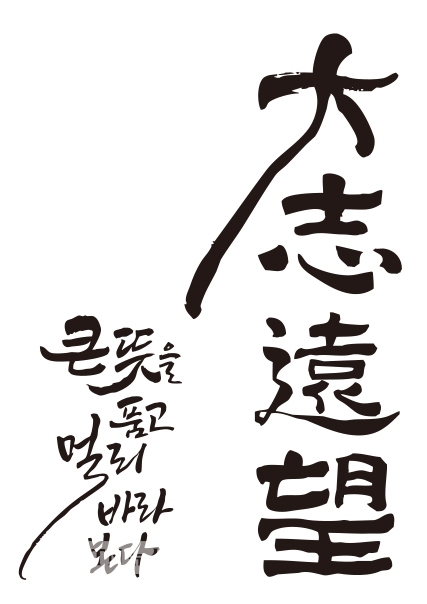 大志遠望
큰 뜻을
품고
멀리
바라
보다